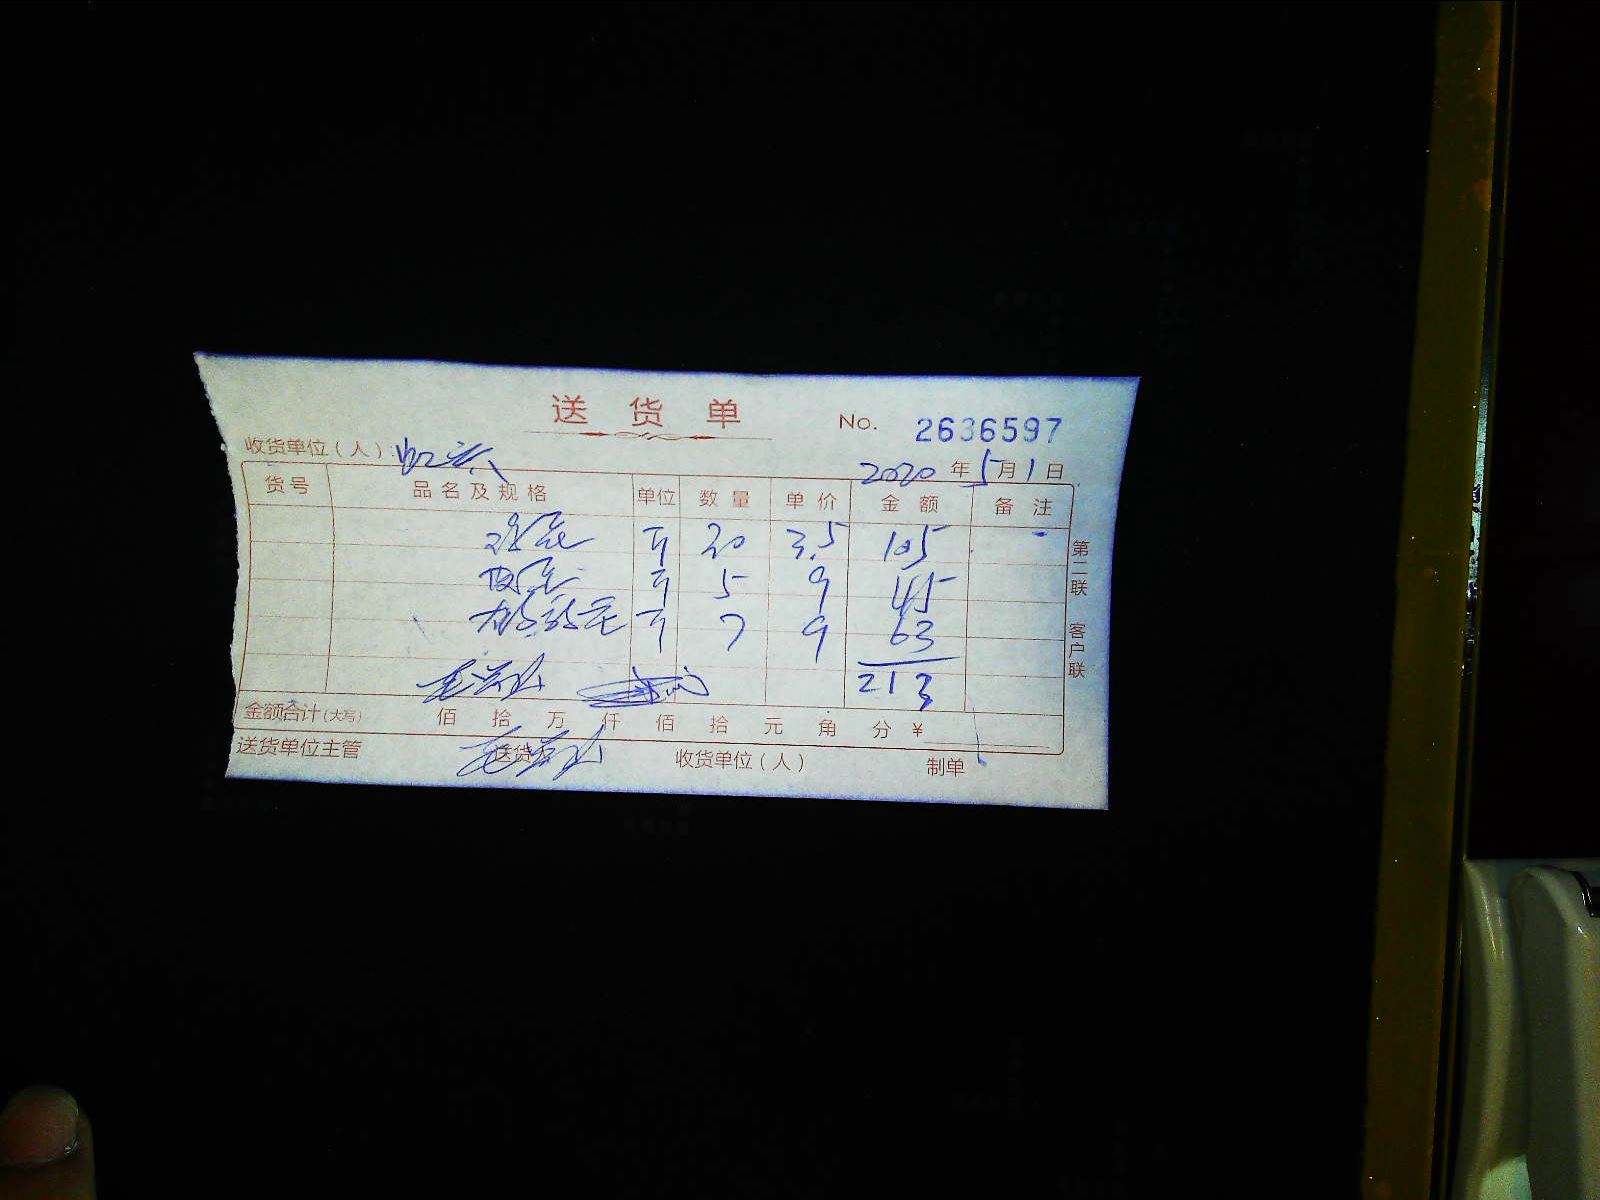 送货单 No. 2636597
收货单位（人）： 2020年5月1日
货号 品名及规格 单位 数量 单价 金额 备注
斤 30 3.5 105
斤 5 9 45
斤 7 9 63
213
金额合计（大写） 佰 拾 万 仟 佰 拾 元 角 分 ¥
送货单位主管 送货人 收货单位（人） 制单
第二联 客户联